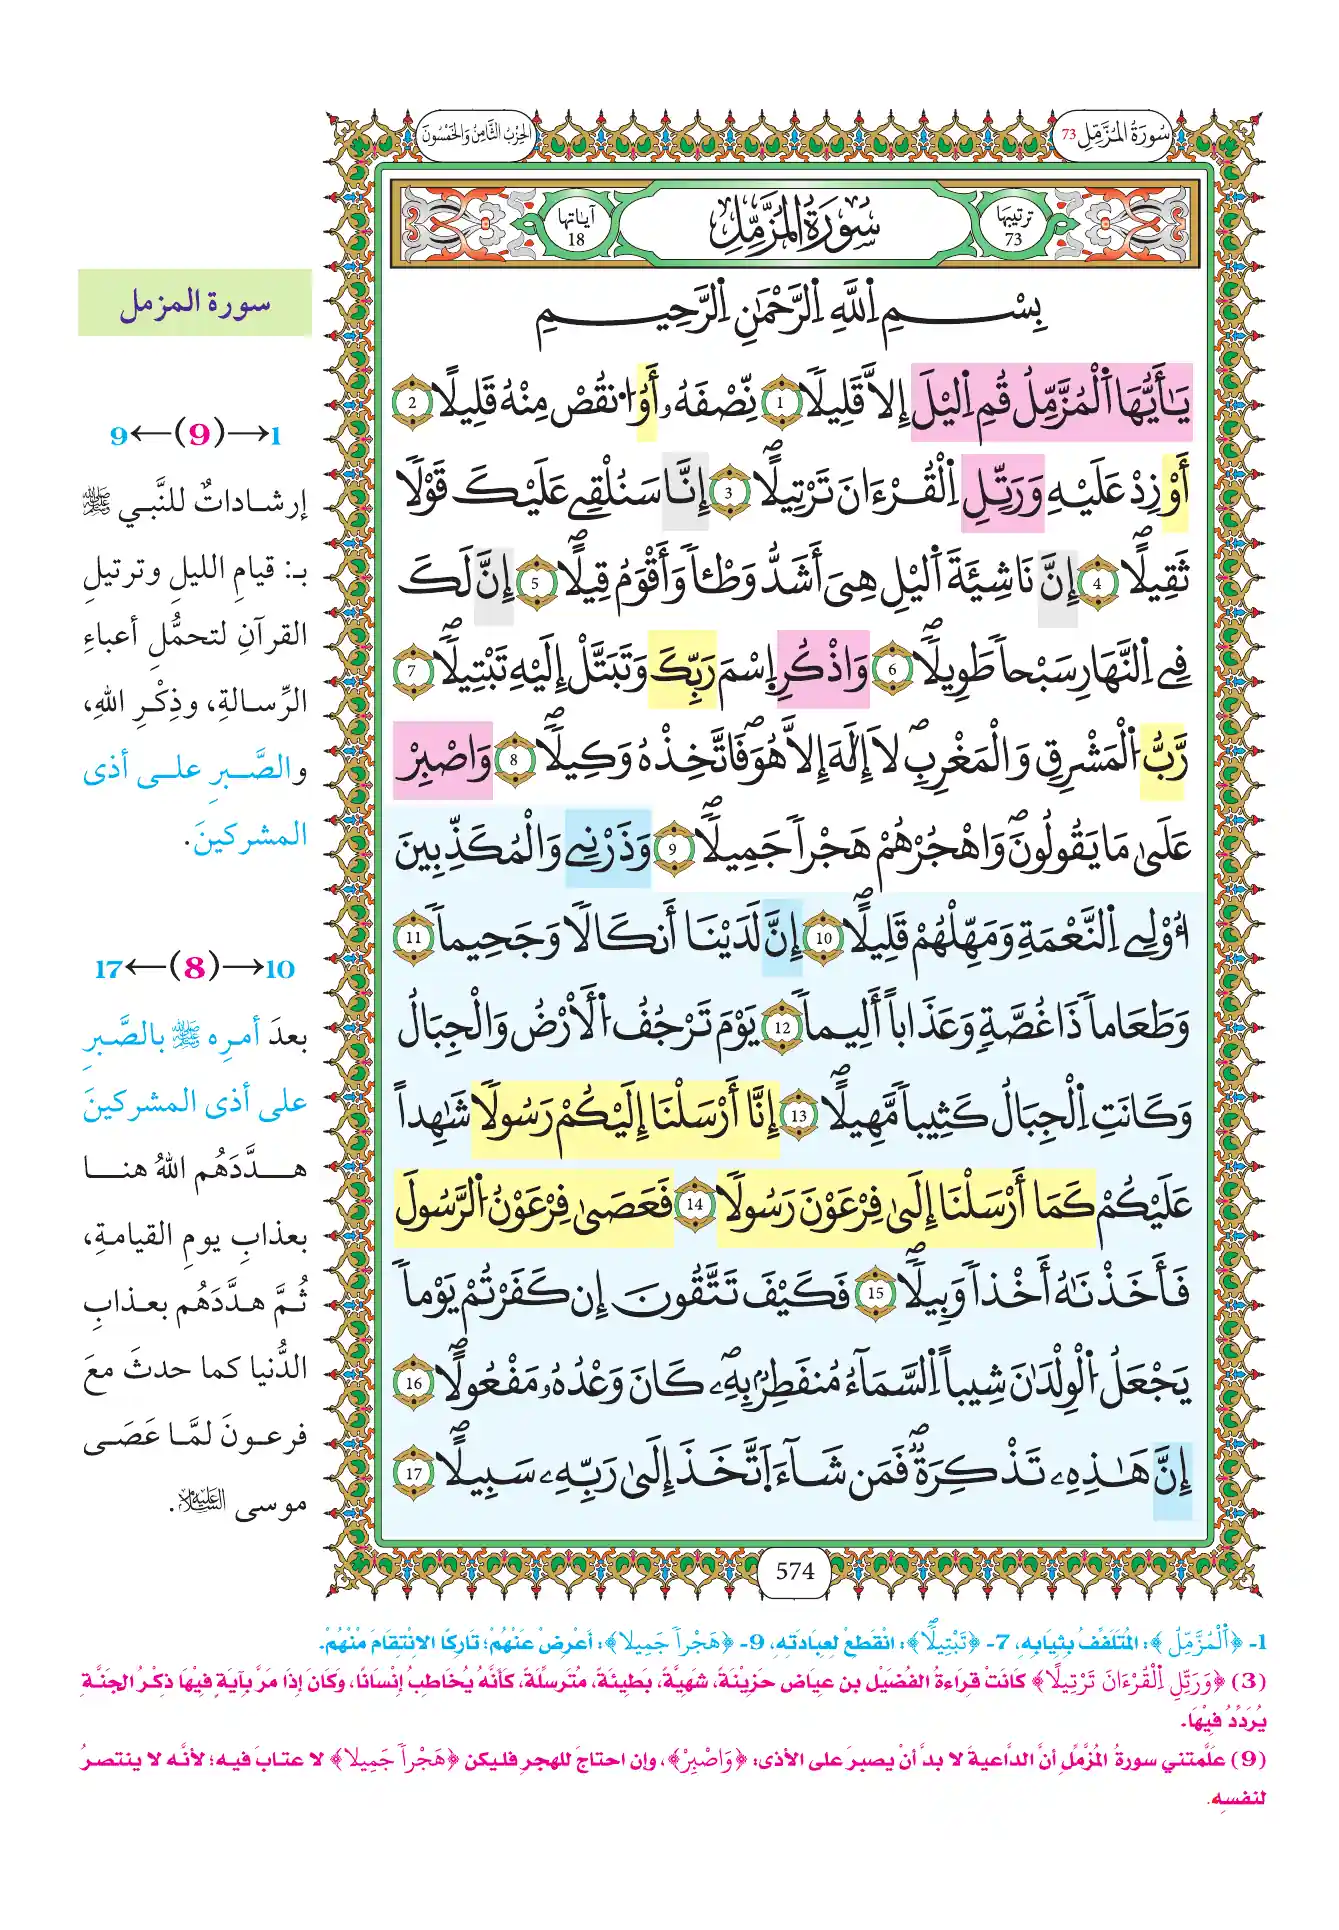 سُورَةُ الْمُزَّمِّلِ 73
الحِزْبُ الثَّامِنُ وَالخَمْسُونَ
ترتيبها 73
سُورَةُ الْمُزَّمِّلِ
آياتها 18
بِسْمِ اِ۬للَّهِ اِ۬لرَّحْمَٰنِ اِ۬لرَّحِيمِ
يَٰأَيُّهَا اَ۬لْمُزَّمِّلُ قُمِ اِ۬ليْلَ إِلَّا قَلِيلًا 1 نِّصْفَهُۥ أَوُ اُ۟نقُصْ مِنْهُ قَلِيلًا 2
أَوْ زِدْ عَلَيْهِ وَرَتِّلِ اِ۬لْقُرْءَانَ تَرْتِيلًا 3 إِنَّا سَنُلْقِے عَلَيْكَ قَوْلًا
ثَقِيلًا 4 إِنَّ نَاشِئَةَ اَ۬ليْلِ هِيَ أَشَدُّ وَطْـٔاً وَأَقْوَمُ قِيلًا 5 إِنَّ لَكَ
فِے اِ۬لنَّهَارِ سَبْحاً طَوِيلًا 6 وَاذْكُرِ اِ۪سْمَ رَبِّكَ وَتَبَتَّلْ إِلَيْهِ تَبْتِيلًا 7
رَّبُّ اُ۬لْمَشْرِقِ وَالْمَغْرِبِ لَا إِلَٰهَ إِلَّا هُوَ فَاتَّخِذْهُ وَكِيلًا 8 وَاصْبِرْ
عَلَىٰ مَا يَقُولُونَ وَاهْجُرْهُمْ هَجْراً جَمِيلًا 9 وَذَرْنِے وَالْمُكَذِّبِينَ
أُوْلِے اِ۬لنَّعْمَةِ وَمَهِّلْهُمْ قَلِيلًا 10 إِنَّ لَدَيْنَا أَنكَالًا وَجَحِيماً 11
وَطَعَاماً ذَا غُصَّةٍ وَعَذَاباً أَلِيماً 12 يَوْمَ تَرْجُفُ اُ۬لْأَرْضُ وَالْجِبَالُ
وَكَانَتِ اِ۬لْجِبَالُ كَثِيباً مَّهِيلًا 13 إِنَّا أَرْسَلْنَا إِلَيْكُمْ رَسُولًا شَٰهِداً
عَلَيْكُمْ كَمَا أَرْسَلْنَا إِلَىٰ فِرْعَوْنَ رَسُولًا 14 فَعَصَىٰ فِرْعَوْنُ اُ۬لرَّسُولَ
فَأَخَذْنَٰهُ أَخْذاً وَبِيلًا 15 فَكَيْفَ تَتَّقُونَ إِن كَفَرْتُمْ يَوْماً
يَجْعَلُ اُ۬لْوِلْدَٰنَ شِيباً اِ۬لسَّمَآءُ مُنفَطِرٌ بِهِۦ كَانَ وَعْدُهُۥ مَفْعُولًا 16
إِنَّ هَٰذِهِۦ تَذْكِرَةٌ فَمَن شَآءَ اَ۪تَّخَذَ إِلَىٰ رَبِّهِۦ سَبِيلًا 17
574
سورة المزمل
1→(9)←9
إرشاداتٌ للنَّبي ﷺ
بـ: قيامِ الليلِ وترتيلِ
القرآنِ لتحمُّلِ أعباءِ
الرِّسالةِ، وذِكْرِ اللهِ،
والصَّبرِ على أذى
المشركينَ.
10→(8)←17
بعدَ أمرِه ﷺ بالصَّبرِ
على أذى المشركينَ
هدَّدَهُم اللهُ هنا
بعذابِ يومِ القيامةِ،
ثُمَّ هدَّدَهُم بعذابِ
الدُّنيا كما حدثَ معَ
فرعونَ لمَّا عَصَى
موسى عليه السلام.
1- ﴿اَ۬لْمُزَّمِّلُ﴾: المُتَلَفِّفُ بِثِيَابِهِ، 7- ﴿تَبْتِيلًا﴾: انْقَطِعْ لِعِبَادَتِهِ، 9- ﴿هَجْراً جَمِيلا﴾: أَعْرِضْ عَنْهُمْ؛ تَارِكًا الانْتِقَامَ مِنْهُمْ.
(3) ﴿وَرَتِّلِ اِ۬لْقُرْءَانَ تَرْتِيلًا﴾ كَانَتْ قِرَاءةُ الفُضَيل بن عِيَاض حَزِيْنَةً، شَهيَّةً، بَطِيئةً، مُتَرسِّلَةً، كَأنَّهُ يُخَاطِبُ إنْسَانًا، وَكَان إذَا مَرَّ بآيَةٍ فيْهَا ذكْرُ الجَنَّةِ
يُرَدِّدُ فِيْهَا.
(9) علَّمتني سورةُ المُزَّمِّلِ أنَّ الدَّاعيةَ لا بدَّ أنْ يصبرَ على الأذى: ﴿وَاصْبِرْ﴾، وإن احتاجَ للهجرِ فليكن ﴿هَجْراً جَمِيلا﴾ لا عتابَ فيه؛ لأنَّه لا ينتصرُ
لنفسِهِ.